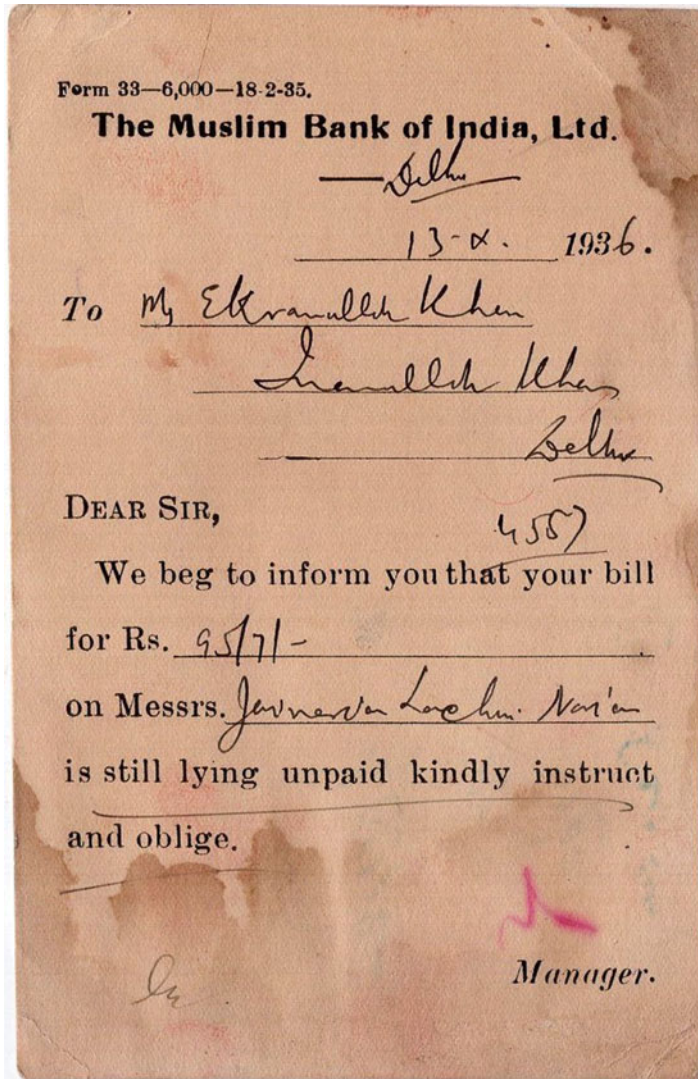 Form 33—6,000—18-2-35.
The Muslim Bank of India, Ltd.
Delhi
13-X. 1936.
To Ms Ekramullah Khan
Inamullah Khan
Delhi
DEAR SIR,
4557
We beg to inform you that your bill
for Rs. 95/7/-
on Messrs. Narain
is still lying unpaid kindly instruct
and oblige.
Manager.